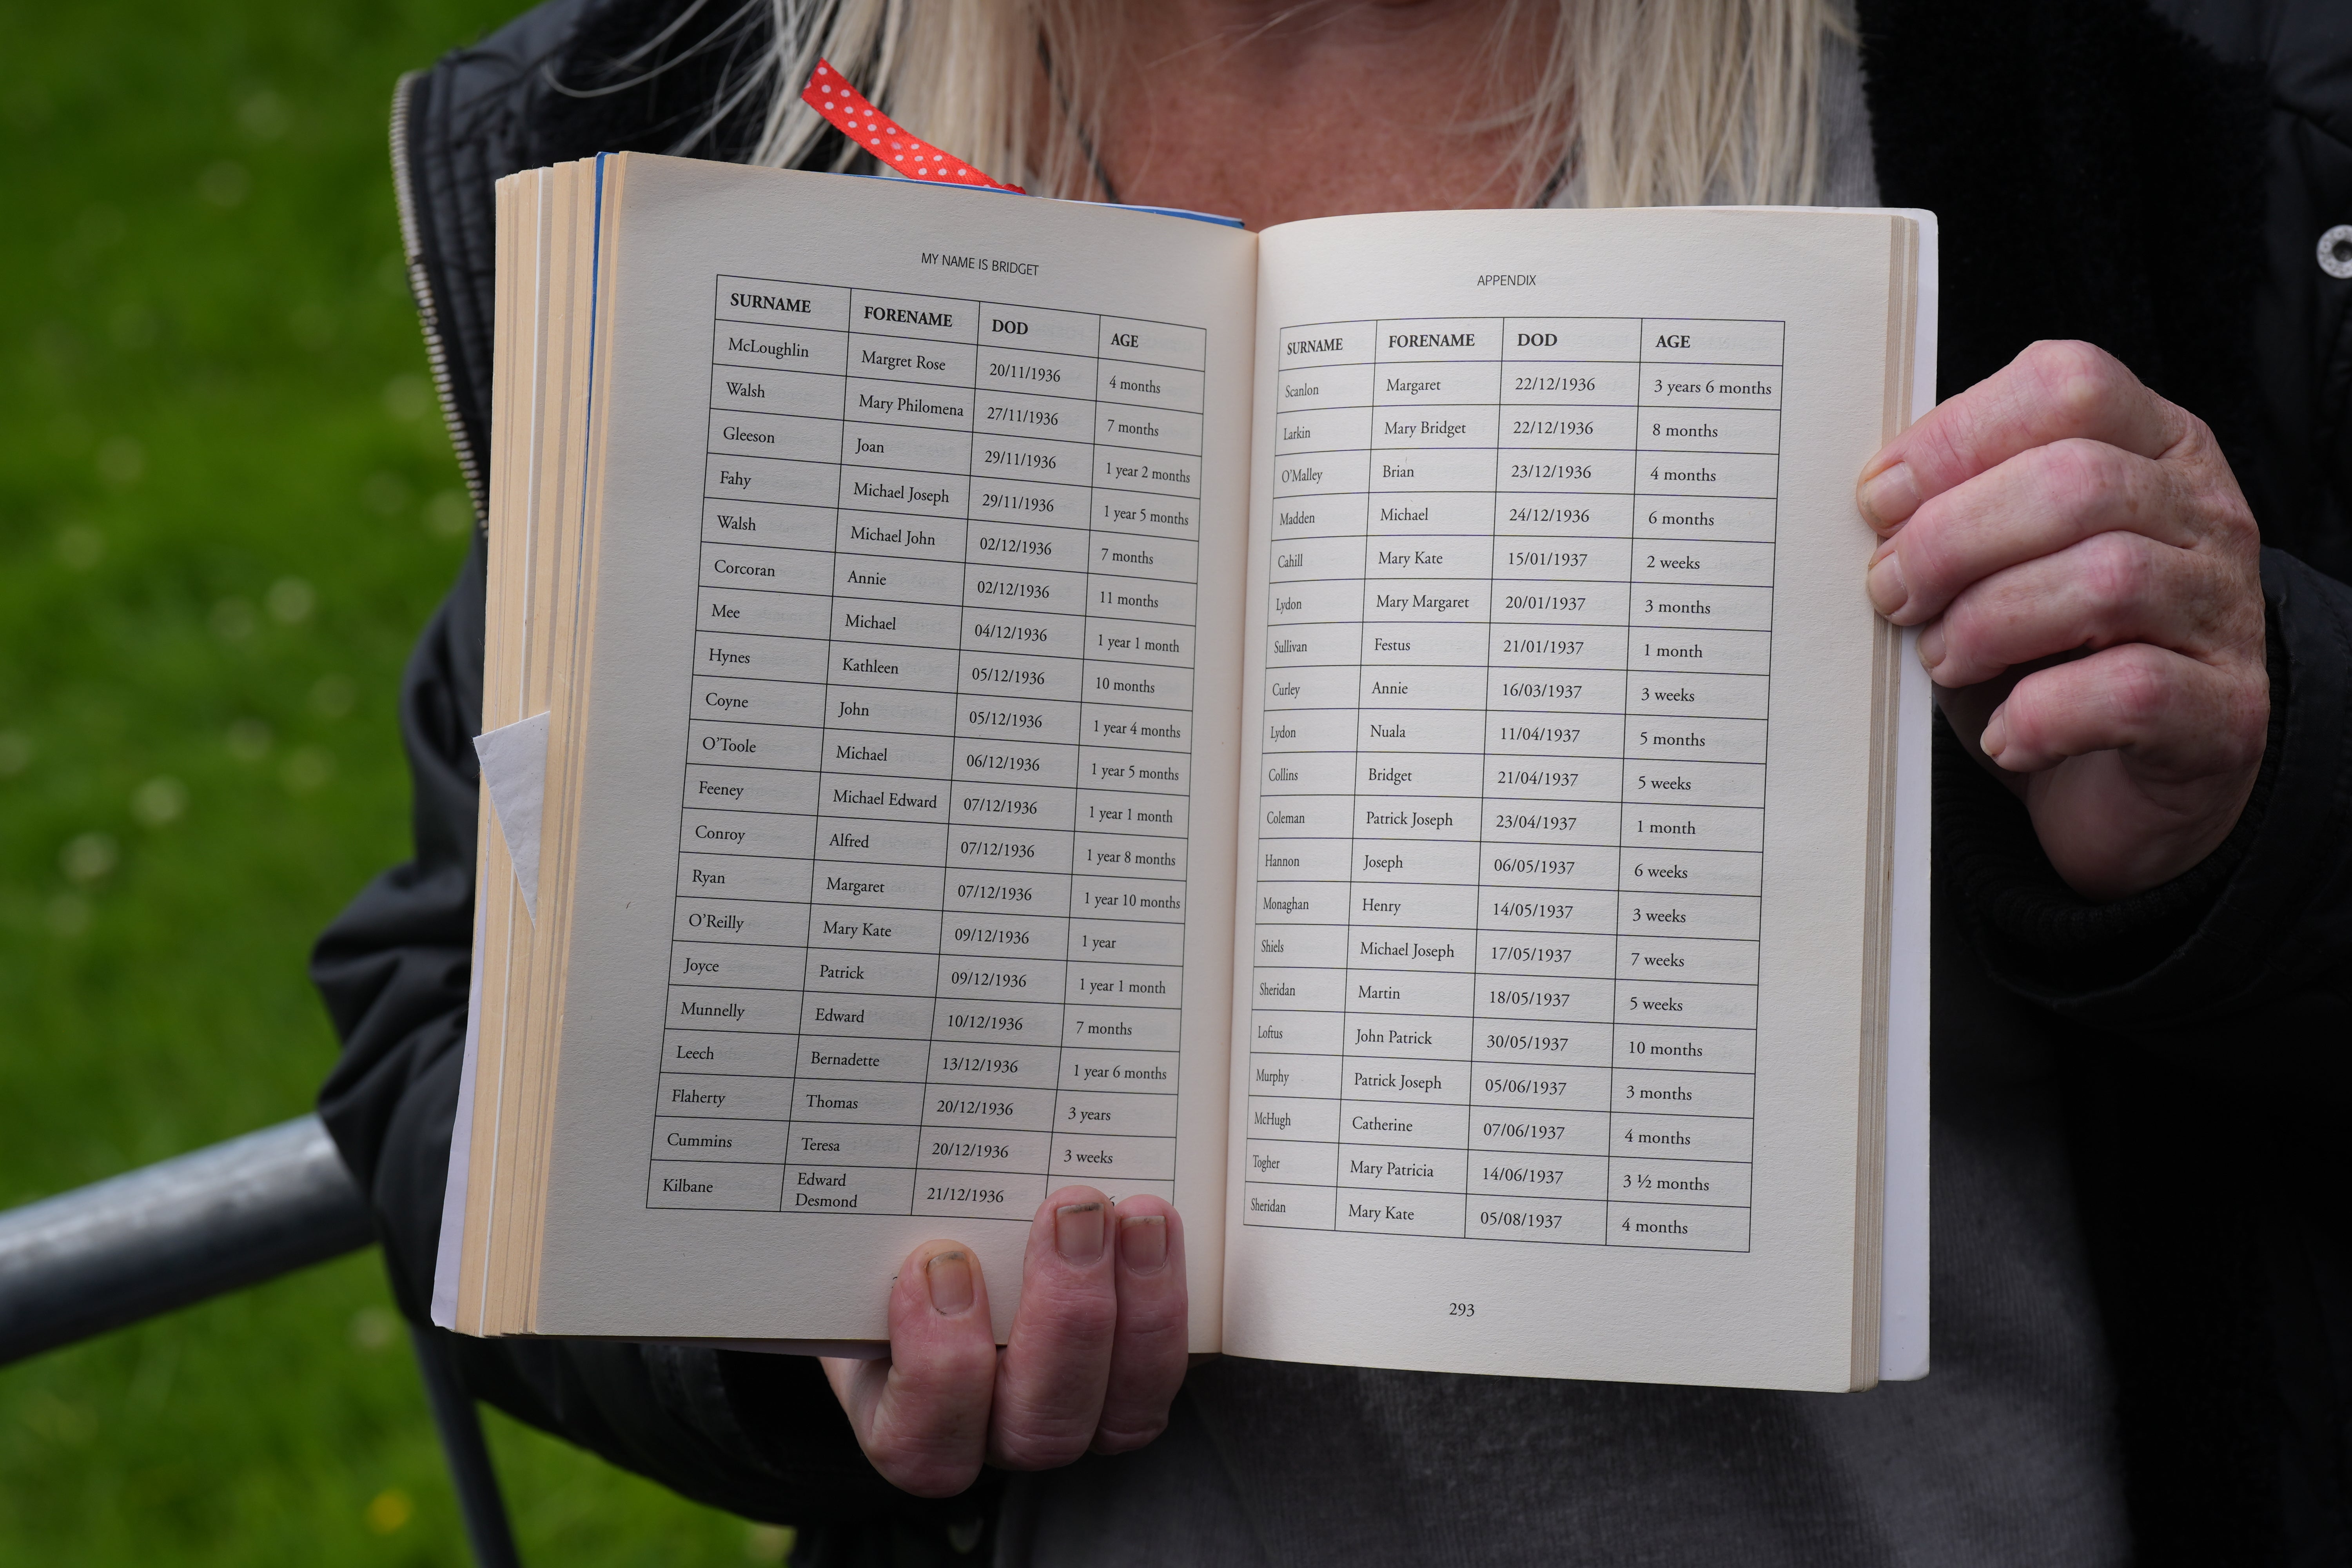 MY NAME IS BRIDGET
SURNAME FORENAME DOD AGE
McLoughlin Margret Rose 20/11/1936 4 months
Walsh Mary Philomena 27/11/1936 7 months
Gleeson Joan 29/11/1936 1 year 2 months
Fahy Michael Joseph 29/11/1936 1 year 5 months
Walsh Michael John 02/12/1936 7 months
Corcoran Annie 02/12/1936 11 months
Mee Michael 04/12/1936 1 year 1 month
Hynes Kathleen 05/12/1936 10 months
Coyne John 05/12/1936 1 year 4 months
O’Toole Michael 06/12/1936 1 year 5 months
Feeney Michael Edward 07/12/1936 1 year 1 month
Conroy Alfred 07/12/1936 1 year 8 months
Ryan Margaret 07/12/1936 1 year 10 months
O’Reilly Mary Kate 09/12/1936 1 year
Joyce Patrick 09/12/1936 1 year 1 month
Munnelly Edward 10/12/1936 7 months
Leech Bernadette 13/12/1936 1 year 6 months
Flaherty Thomas 20/12/1936 3 years
Cummins Teresa 20/12/1936 3 weeks
Kilbane Edward Desmond 21/12/1936
APPENDIX
SURNAME FORENAME DOD AGE
Scanlon Margaret 22/12/1936 3 years 6 months
Larkin Mary Bridget 22/12/1936 8 months
O’Malley Brian 23/12/1936 4 months
Madden Michael 24/12/1936 6 months
Cahill Mary Kate 15/01/1937 2 weeks
Lydon Mary Margaret 20/01/1937 3 months
Sullivan Festus 21/01/1937 1 month
Curley Annie 16/03/1937 3 weeks
Lydon Nuala 11/04/1937 5 months
Collins Bridget 21/04/1937 5 weeks
Coleman Patrick Joseph 23/04/1937 1 month
Hannon Joseph 06/05/1937 6 weeks
Monaghan Henry 14/05/1937 3 weeks
Shiels Michael Joseph 17/05/1937 7 weeks
Sheridan Martin 18/05/1937 5 weeks
Loftus John Patrick 30/05/1937 10 months
Murphy Patrick Joseph 05/06/1937 3 months
McHugh Catherine 07/06/1937 4 months
Togher Mary Patricia 14/06/1937 3 ½ months
Sheridan Mary Kate 05/08/1937 4 months
293